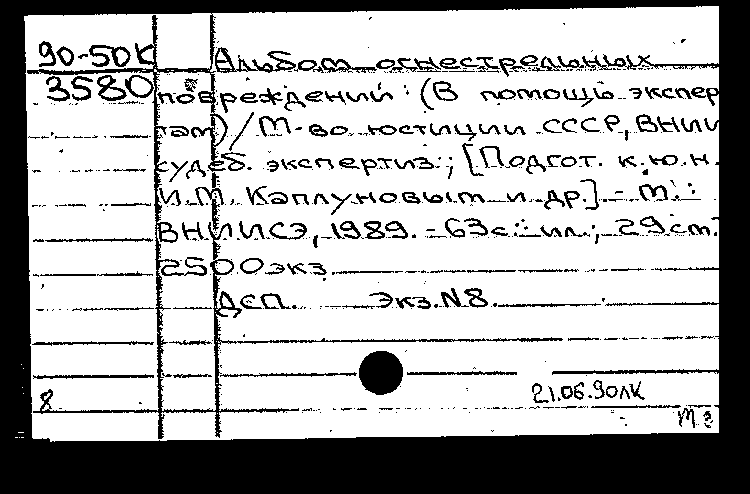 90-50К Альбом огнестрельных
3580 повреждений: (В помощь экспер
там) / М-во юстиции СССР, ВНИИ
судеб. экспертиз.; [Подгот. к.ю.н.
И.М. Каплуновым и др.] - М.:
ВНИИСЭ, 1989. - 63с.: ил.; 29см.
2500экз.
ДСП. Экз.N8.
21.06.90лк
8